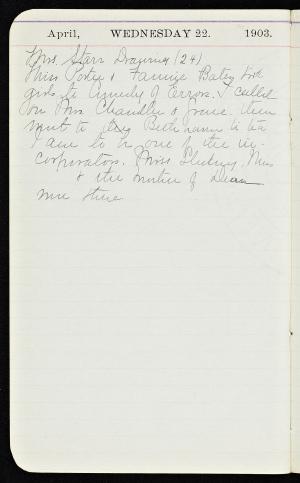 April, WEDNESDAY 22. 1903.
Mrs. Starr Drawing (24)
Miss Porter & Fannie Bates took
girls to Comedy of Errors. I called
on Mrs Chandler & Grace, then
went to to tea
I am to be one of the in-
corporators. Miss Miss
& the mother of Dean
were there